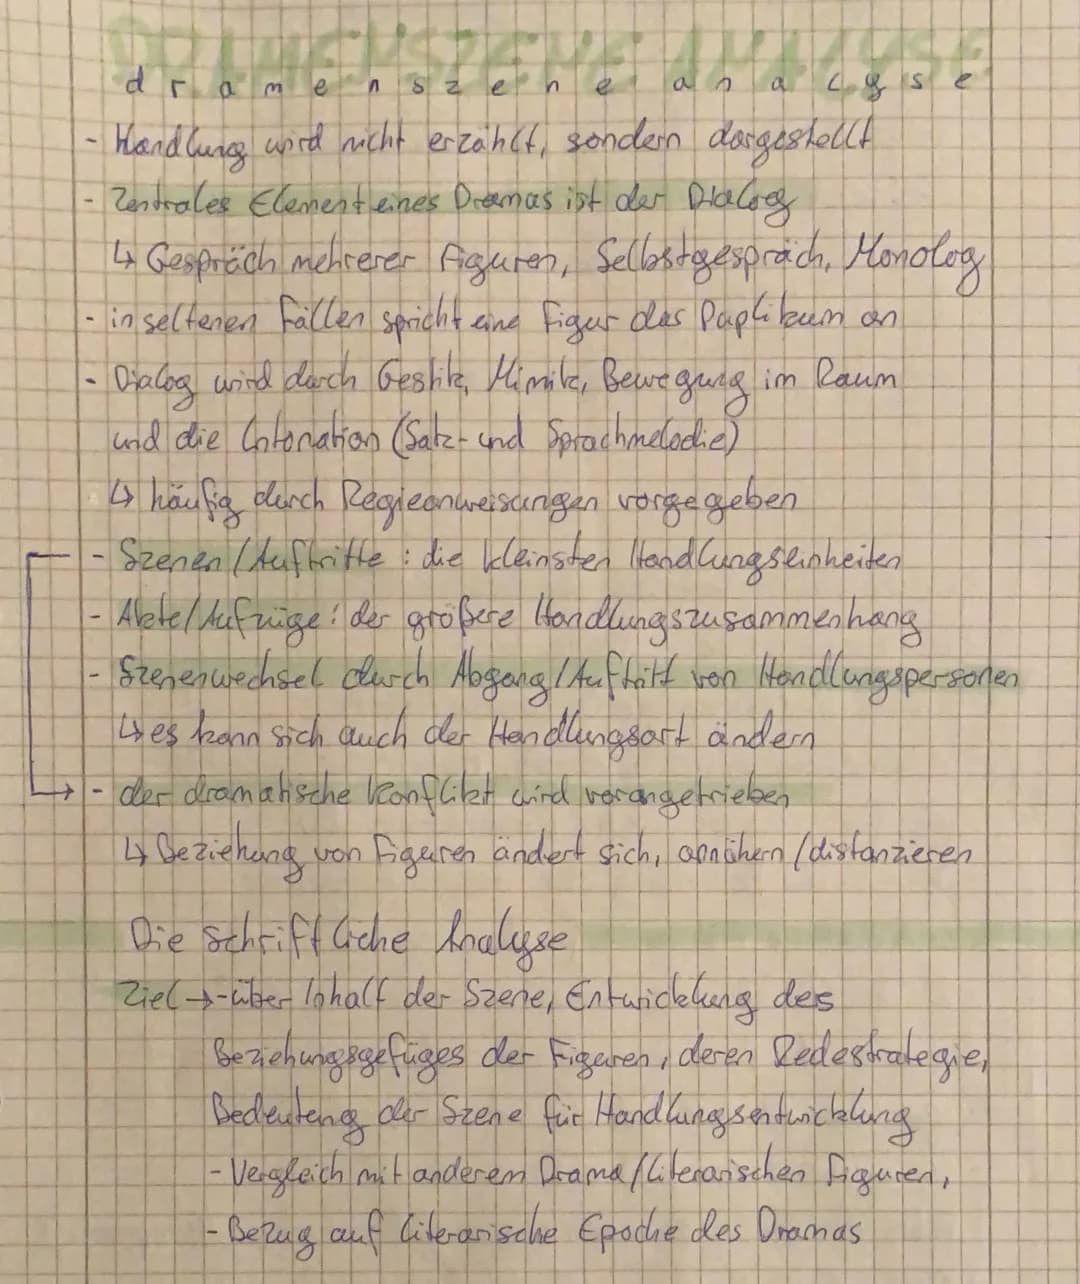 DRAMENSZENE ANALYSE
dramenszene analyse
- Handlung wird nicht erzählt, sondern dargestellt
- Zentrales Element eines Dramas ist der Dialog
↳ Gespräch mehrerer Figuren, Selbstgespräch, Monolog
- in seltenen Fällen spricht eine Figur das Paplikum an
- Dialog wird durch Gestik, Mimik, Bewegung im Raum
und die Intonation (Satz- und Sprachmelodie)
↳ häufig durch Regieanweisungen vorgegeben
- Szenen/Auftritte: die kleinsten Handlungseinheiten
- Akte/Aufzüge: der größere Handlungszusammenhang
- Szenenwechsel durch Abgang/Auftritt von Handlungspersonen
↳ es kann sich auch der Handlungsort ändern
→ - der dramatische Konflikt wird vorangetrieben
↳ Beziehung von Figuren ändert sich, annähern/distanzieren
Die schriftliche Analyse
Ziel → - über Inhalt der Szene, Entwicklung des
Beziehungsgefüges der Figuren, deren Redestrategie,
Bedeutung der Szene für Handlungsentwicklung
- Vergleich mit anderem Drama/literarischen Figuren,
- Bezug auf literarische Epoche des Dramas